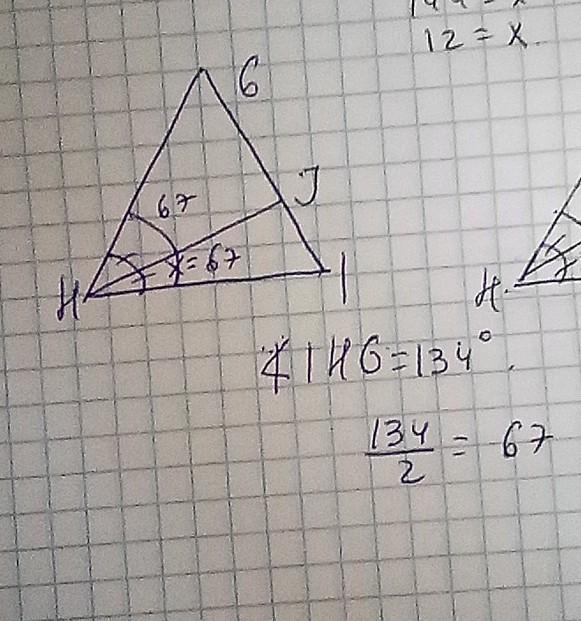 12 = x
G
67
J
x = 67
H
I
H
∡ I H G = 134°.
134/2 = 67